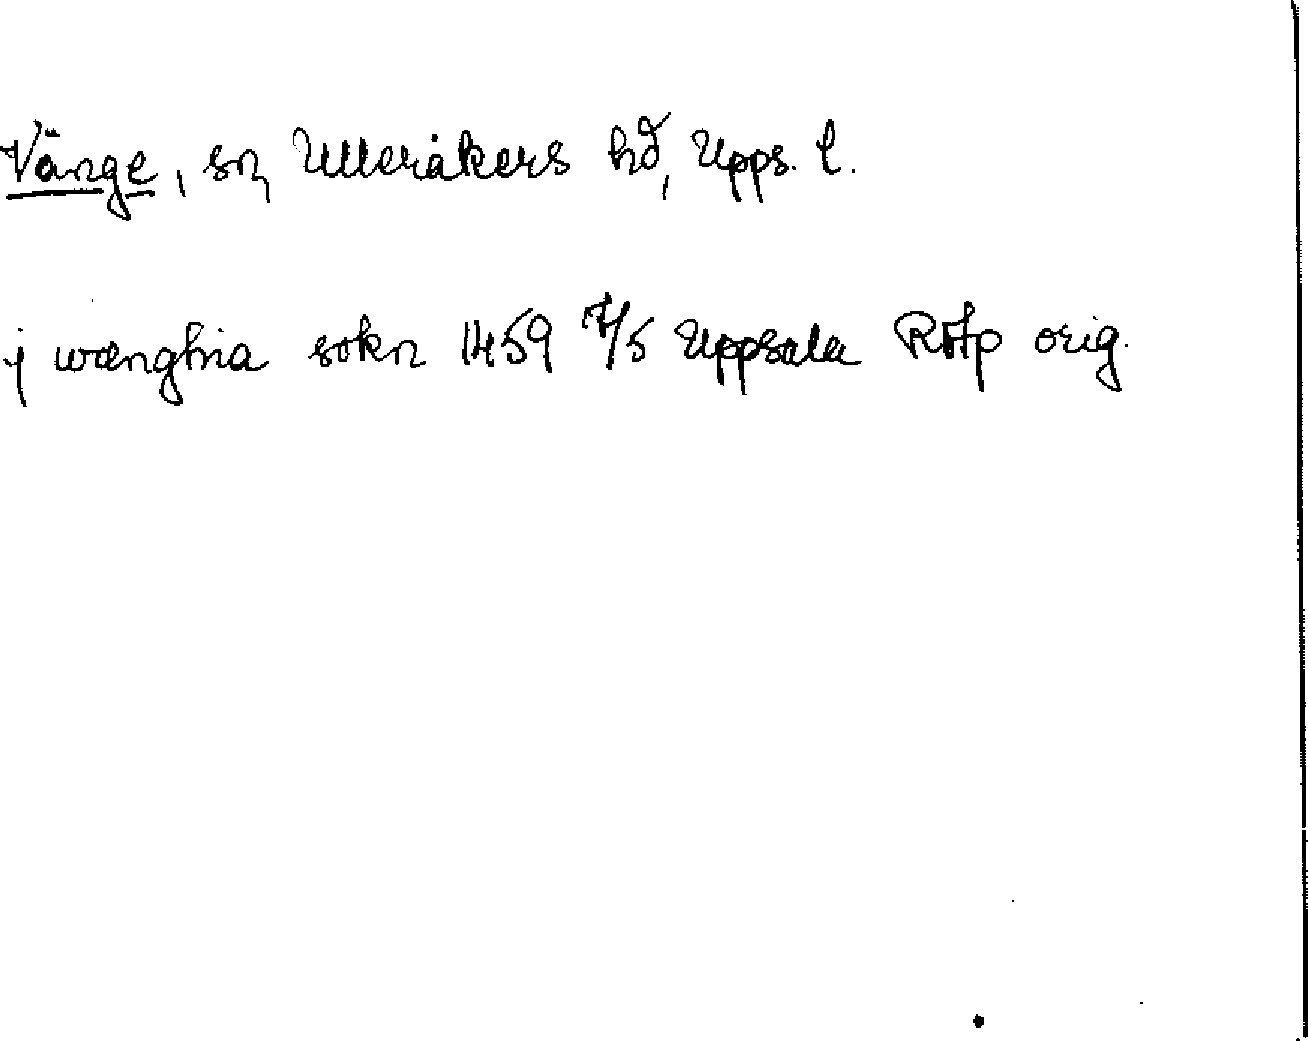 Vänge, sn, Ulleråkers hd, Upps. l.
j wænghia sokn 1459 7/5 Uppsala RAp orig.